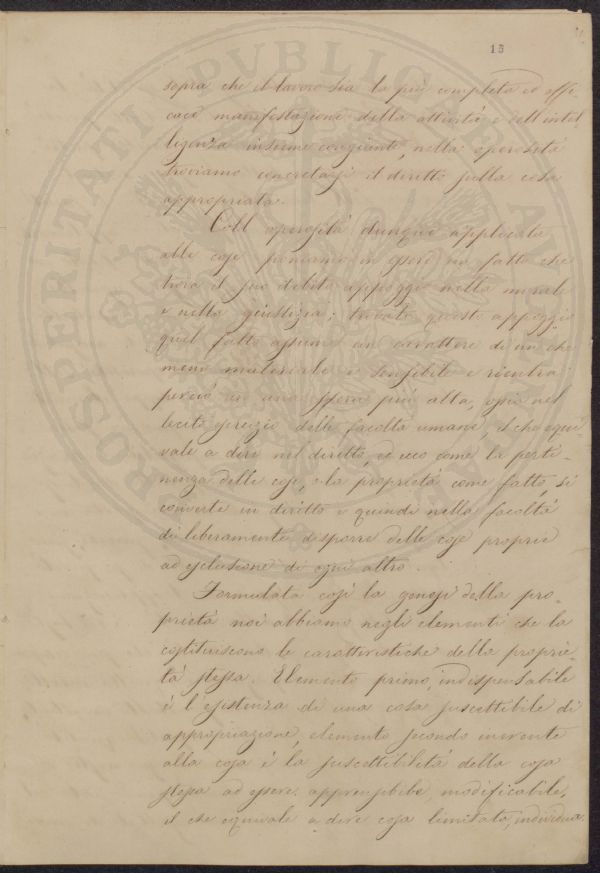 13
sopra che il lavoro sia la più completa ed effi-
cace manifestazione della attività e dell'intel-
ligenza insieme congiunte, nella operosità
troviamo concretarsi il diritto sulla cosa
appropriata.
Coll'operosità dunque applicata
alle cose poniamo in essere un fatto che
trova il suo debito appoggio nella morale
e nella giustizia; trovato questo appoggio
quel fatto assume un carattere di un che
meno materiale e sensibile e rientra
perciò in una sfera più alta, ossia nel
lecito esercizio delle facoltà umane, il che equi-
vale a dire nel diritto, ed ecco come la perti-
nenza delle cose, e la proprietà come fatto, si
converte in diritto e quindi nella facoltà
di liberamente disporre delle cose proprie
ad esclusione di ogni altro.
Formulata così la genesi della pro-
prietà noi abbiamo negli elementi che la
costituiscono le caratteristiche della proprie-
tà stessa. Elemento primo, indispensabile
è l'esistenza di una cosa suscettibile di
appropriazione, elemento secondo inerente
alla cosa è la suscettibilità della cosa
stessa ad essere apprensibile, modificabile,
il che equivale a dire cosa limitata, individua.
PROSPERITATI PVBLICAE AVGENDAE